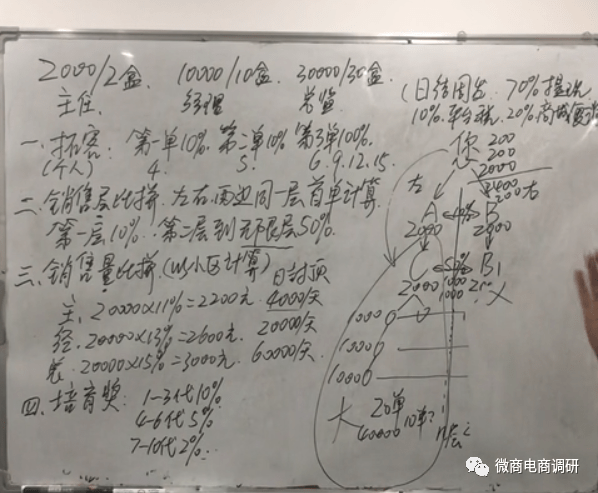 2000/2盒 10000/10盒 30000/30盒
主任 经理 总监
(日结周发 70%提现
10%平台税 20%商城复消
一、拓客: 第一单10% 第二单10% 第3单100%
(个人) 4. 5. 6.9.12.15.
二、销售层比拼 左右两边同一层首单计算
第一层10% 第二层到无限层50%
三、销售量比拼(以小区计算)日封顶
主、20000×11%=2200元 4000/天
经、20000×13%=2600元 20000/天
总、20000×15%=3000元 60000/天
四、培育奖: 1-3代10%
4-6代5%
7-10代2%
您 200
200
2000
2400
左 200右
A 10% B
2000 2000
C 50% B1
2000 1000
1000
1000
1000
1000
大 20单
40000 10单
微商电商调研